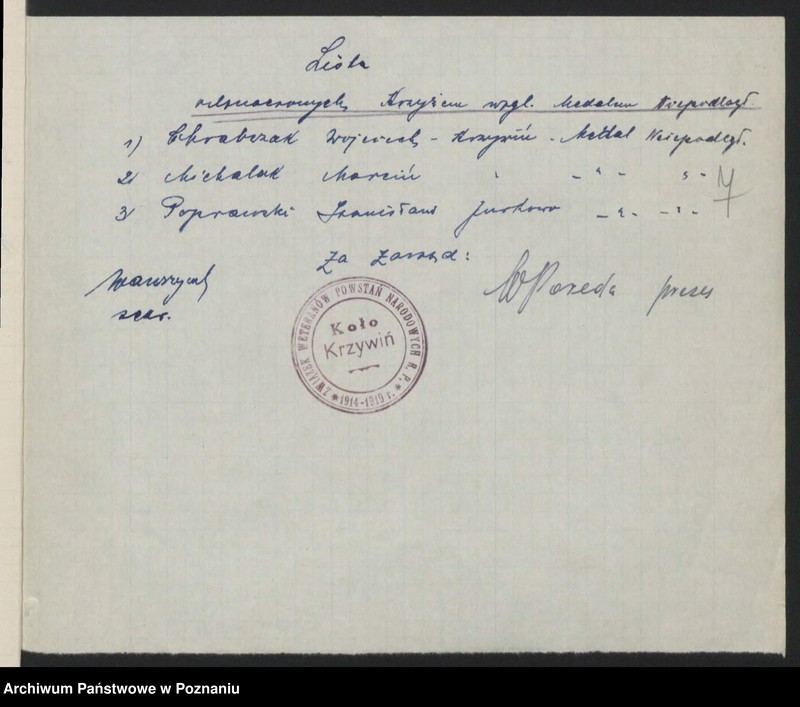 Lista
odznaczonych Krzyżem wzgl. Medalem Niepodległ.
1) Chrabczak Wojciech - Krzywiń - Medal Niepodleg.
2) Michalak Marcin " - " - " -
3) Poprawski Stanisław Jurkowo - " - - " -
Za Zarząd:
Wawrzyniak
sekr.
prezes
ZWIĄZEK WETERANÓW POWSTAŃ NARODOWYCH R.P.
1914-1919 r.
Koło
Krzywiń
Archiwum Państwowe w Poznaniu